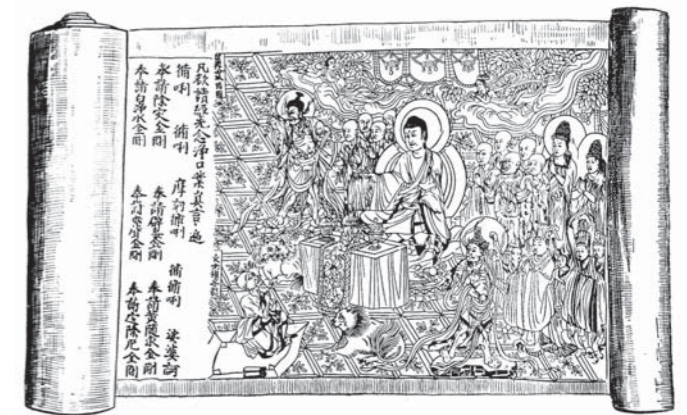 凡欲讀經先念淨口業真言一遍
脩唎 脩唎 摩訶脩唎 脩脩唎 娑婆訶
奉請除災金剛 奉請辟毒金剛 奉請黃隨求金剛
奉請白淨水金剛 奉請金剛 奉請定除厄金剛